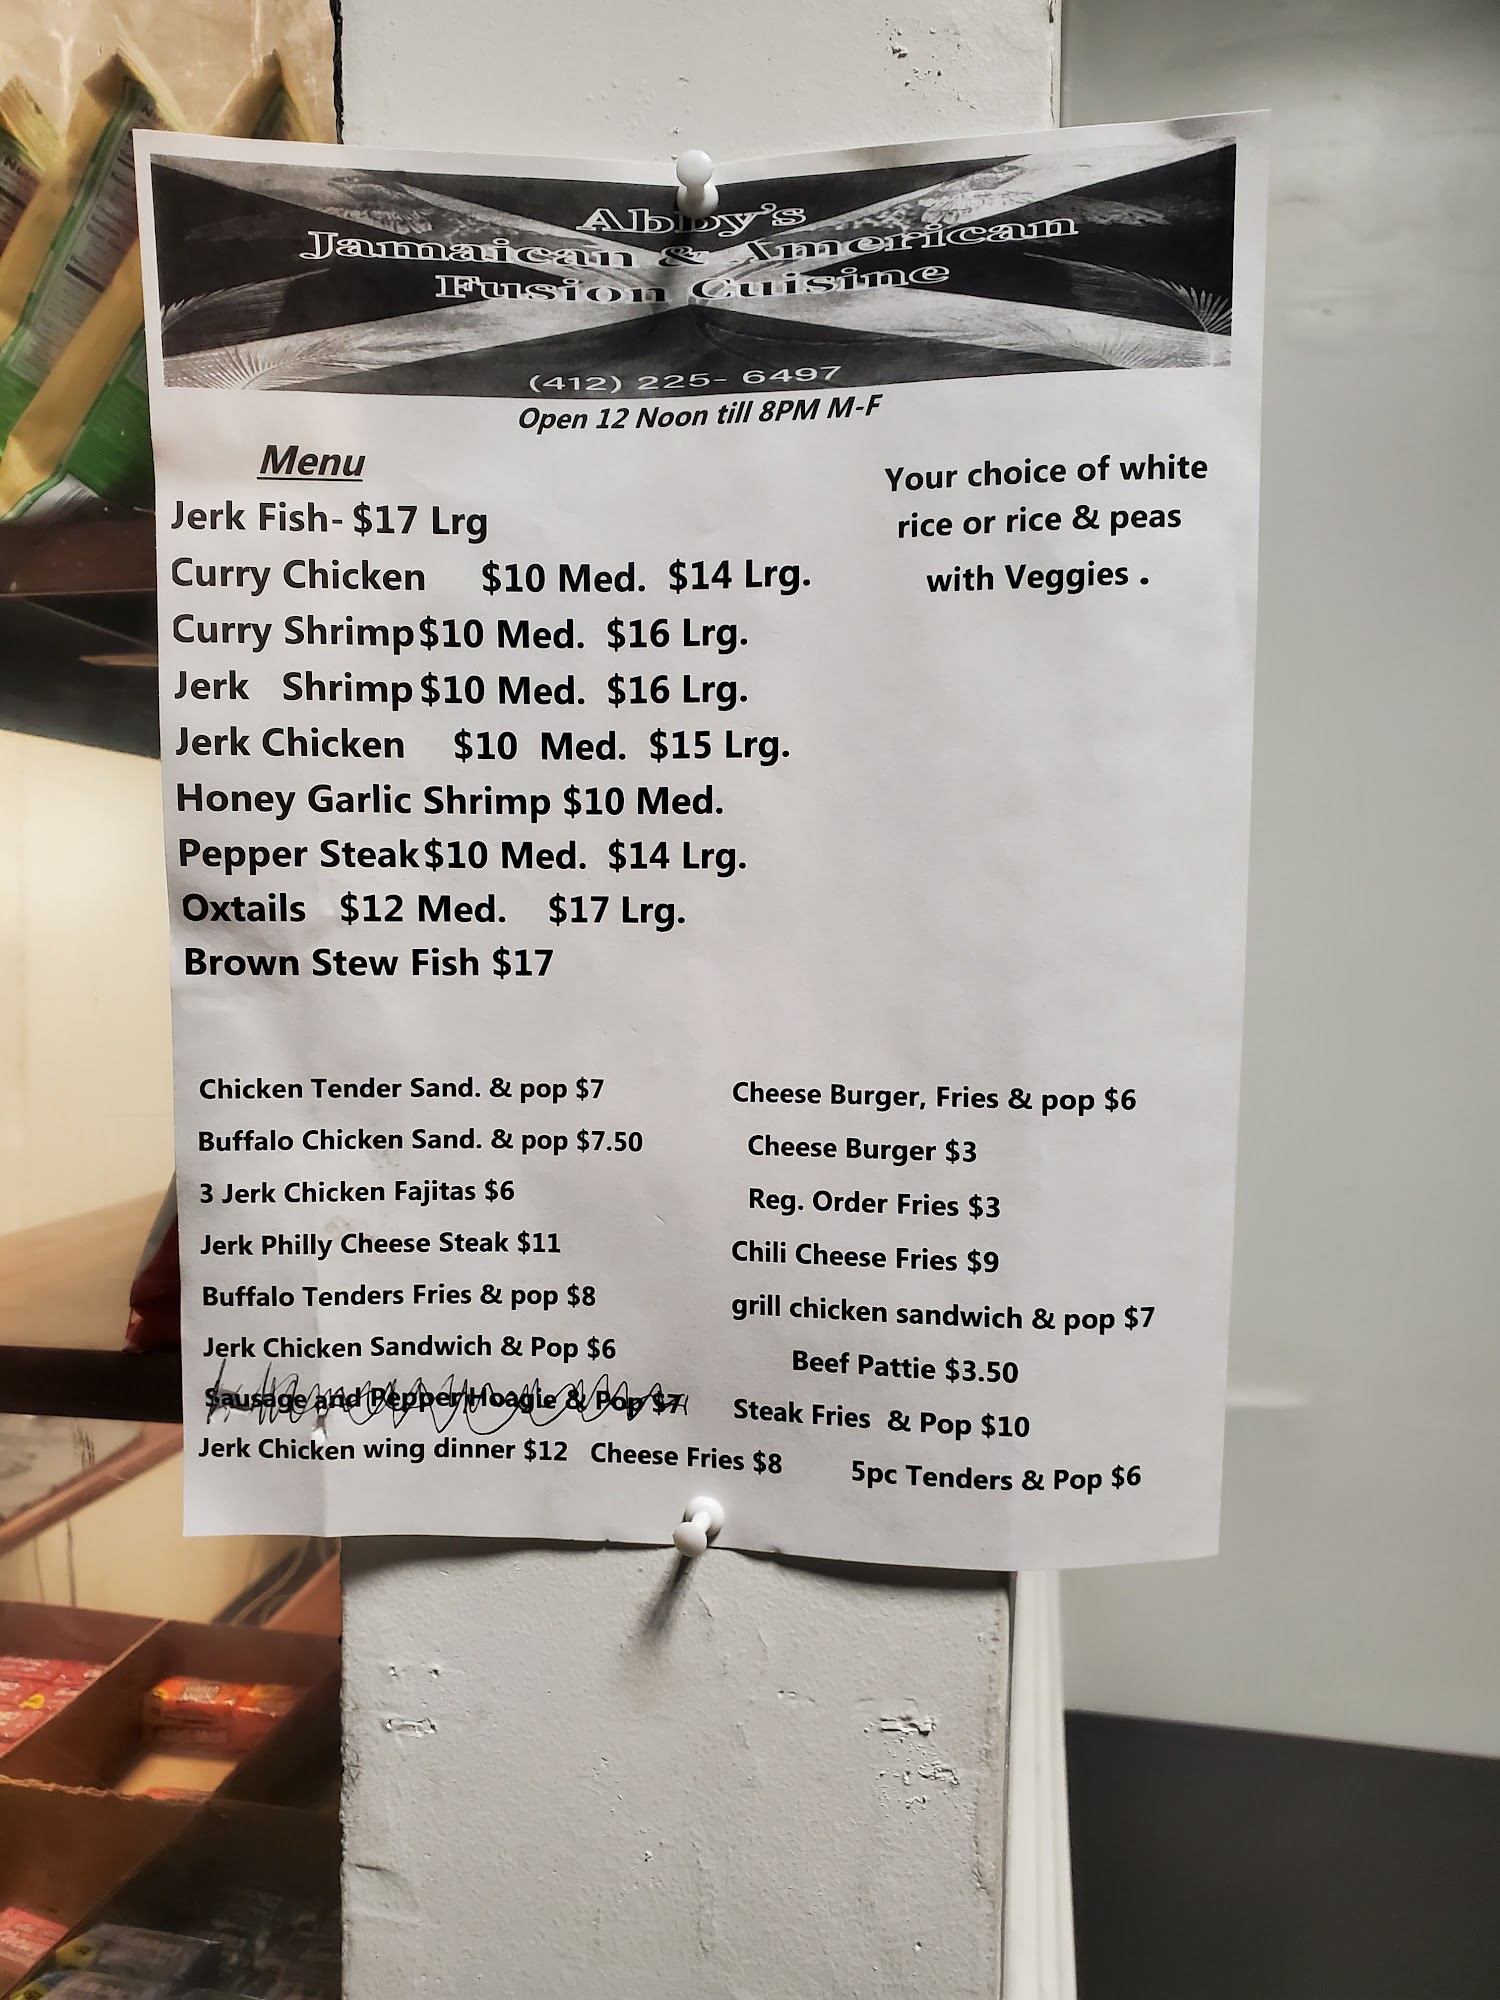 Abby's
Jamaican & American
Fusion Cuisine
(412) 225- 6497
Open 12 Noon till 8PM M-F
Menu
Jerk Fish- $17 Lrg
Curry Chicken $10 Med. $14 Lrg.
Curry Shrimp $10 Med. $16 Lrg.
Jerk Shrimp $10 Med. $16 Lrg.
Jerk Chicken $10 Med. $15 Lrg.
Honey Garlic Shrimp $10 Med.
Pepper Steak $10 Med. $14 Lrg.
Oxtails $12 Med. $17 Lrg.
Brown Stew Fish $17
Your choice of white
rice or rice & peas
with Veggies .
Chicken Tender Sand. & pop $7
Buffalo Chicken Sand. & pop $7.50
3 Jerk Chicken Fajitas $6
Jerk Philly Cheese Steak $11
Buffalo Tenders Fries & pop $8
Jerk Chicken Sandwich & Pop $6
Sausage and Pepper Hoagie & Pop $7
Jerk Chicken wing dinner $12 Cheese Fries $8 5pc Tenders & Pop $6
Cheese Burger, Fries & pop $6
Cheese Burger $3
Reg. Order Fries $3
Chili Cheese Fries $9
grill chicken sandwich & pop $7
Beef Pattie $3.50
Steak Fries & Pop $10